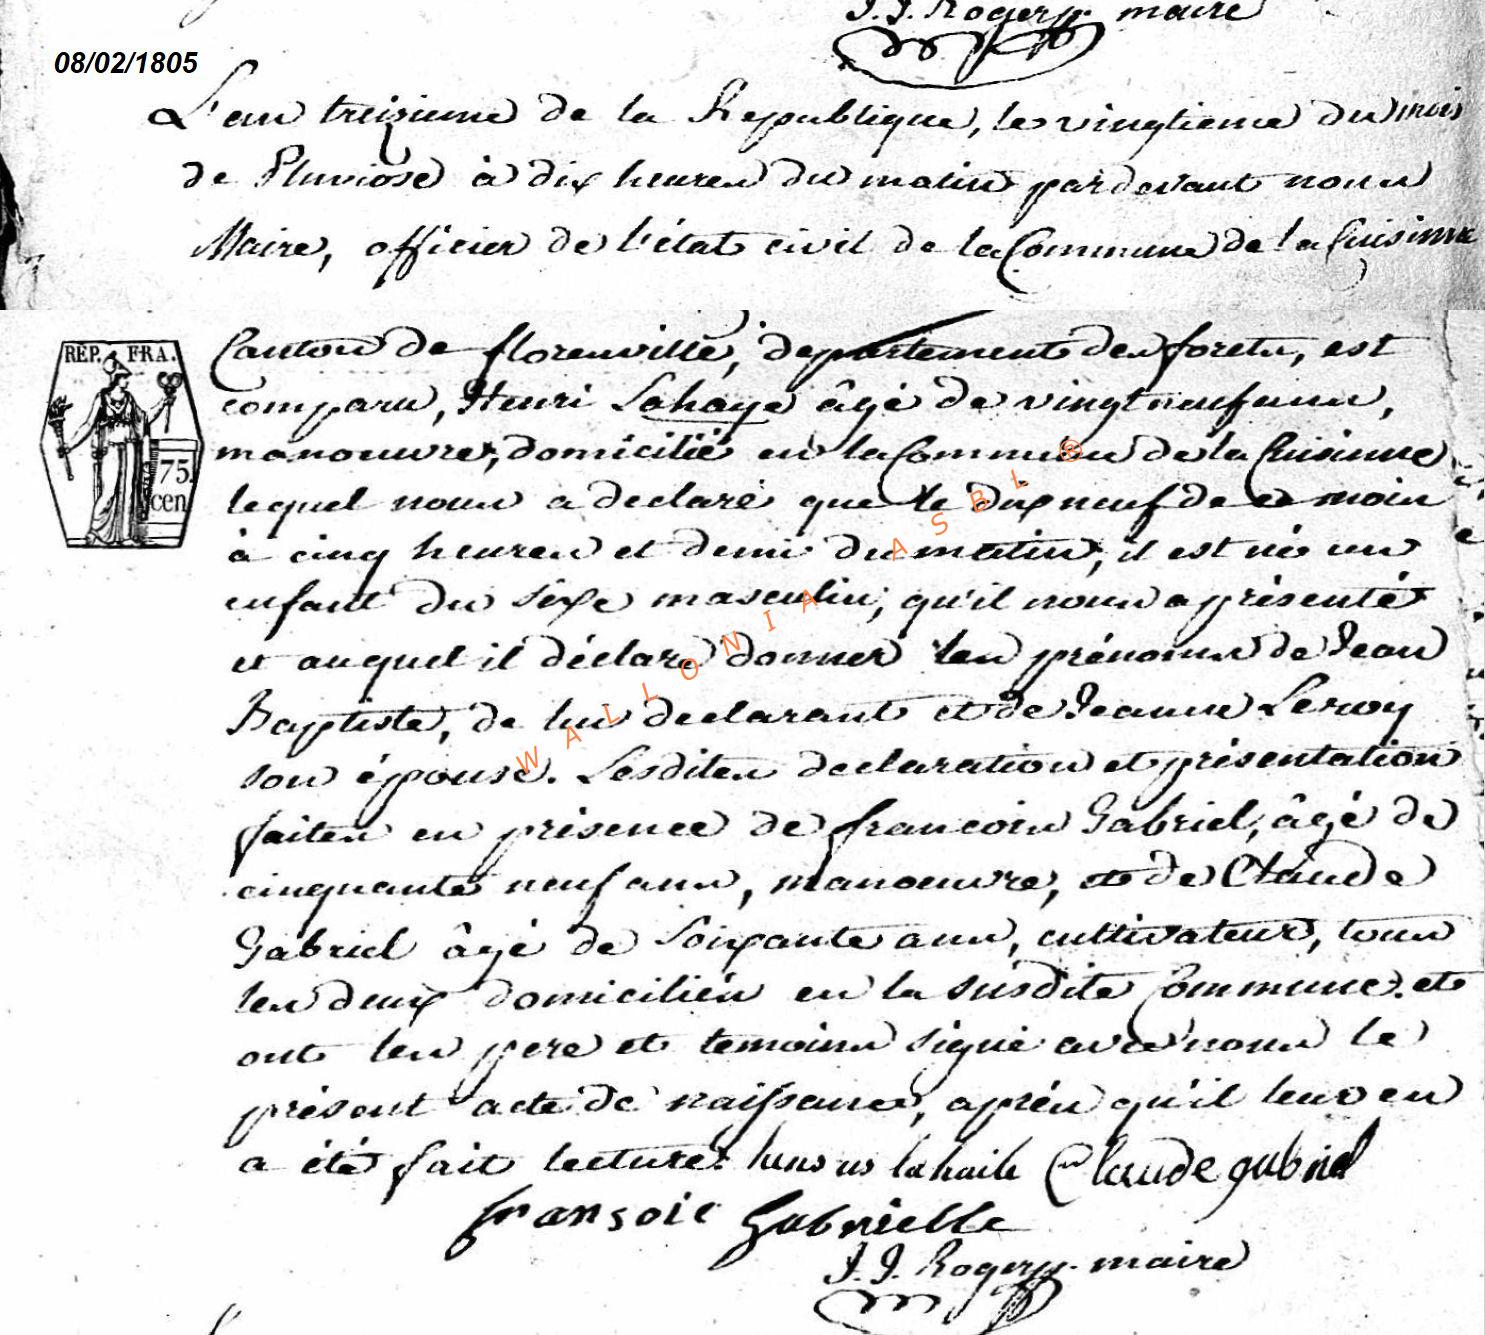 J. J. Rogery. maire
08/02/1805
L'an treizieme de la Republique, le vingtieme du mois
de Pluviose à dix heures du matin pardevant nous
Maire, officier de l'état civil de la Commune de la Cuisinne
Canton de florenville, departement des forets, est
comparu, Henri Lahaye âgé de vingt neuf ans,
manoeuvre, domicilié en la Commune de la Cuisinne
lequel nous a declaré que le dix neuf de ce mois
à cinq heures et demi du matin, il est né un
enfant du sexe masculin, qu'il nous a présenté
et auquel il déclare donner les prénoms de Jean
Baptiste, de lui declarant et de Jeanne Leroy
son épouse. Lesdites declaration et présentation
faites en présence de francois Gabriel, âgé de
cinquante neuf ans, manoeuvre, et de Claude
Gabriel âgé de soixante ans, cultivateur, tous
les deux domiciliés en la susdite Commune. et
ont les pere et temoins signé avec nous le
présent acte de naissance, après qu'il leur en
a été fait lecture. lahaile Claude gabriel
fransoie Gabrielle
J. J. Rogery. maire
RÉP. FRA.
75.
cen
WALLONIA ASBL ®